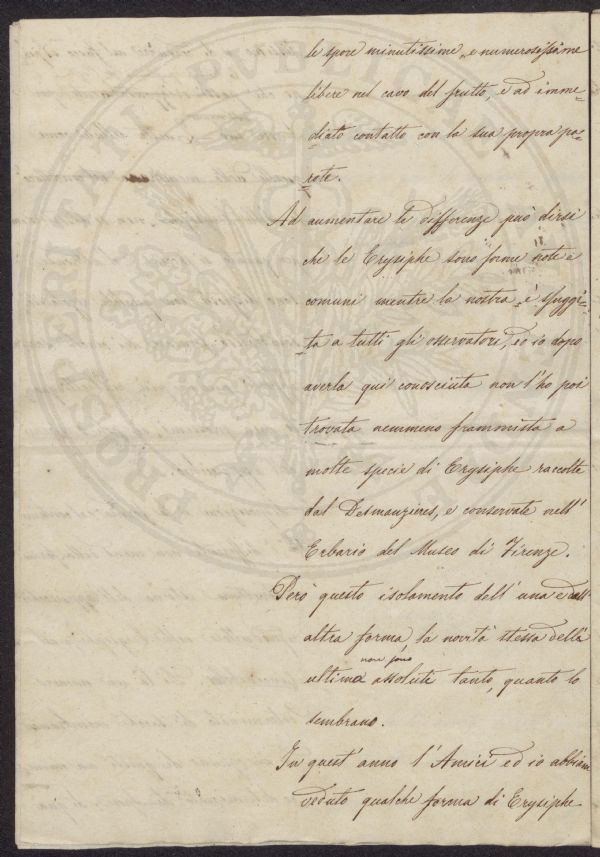 le spore minutissime, e numerosissime
libere nel cavo del frutto, e ad imme-
diato contatto con la sua propra pa-
rete.
Ad aumentare le differenze può dirsi
che le Erysiphe sono forme note e
comuni mentre la nostra è sfuggi-
ta a tutti gli osservatori, ed io dopo
averla qui conosciuta non l'ho poi
trovata nemmeno frammista a
molte specie di Erysiphe raccolte
dal Desmazieres, e conservate nell'
Erbario del Museo di Firenze.
Però questo isolamento dell'una e dall'
altra forma, la novità stessa della
non sono
ultima assolute tanto, quanto lo
sembrano.
In quest'anno l'Amici ed io abbiam
veduto qualche forma di Erysiphe